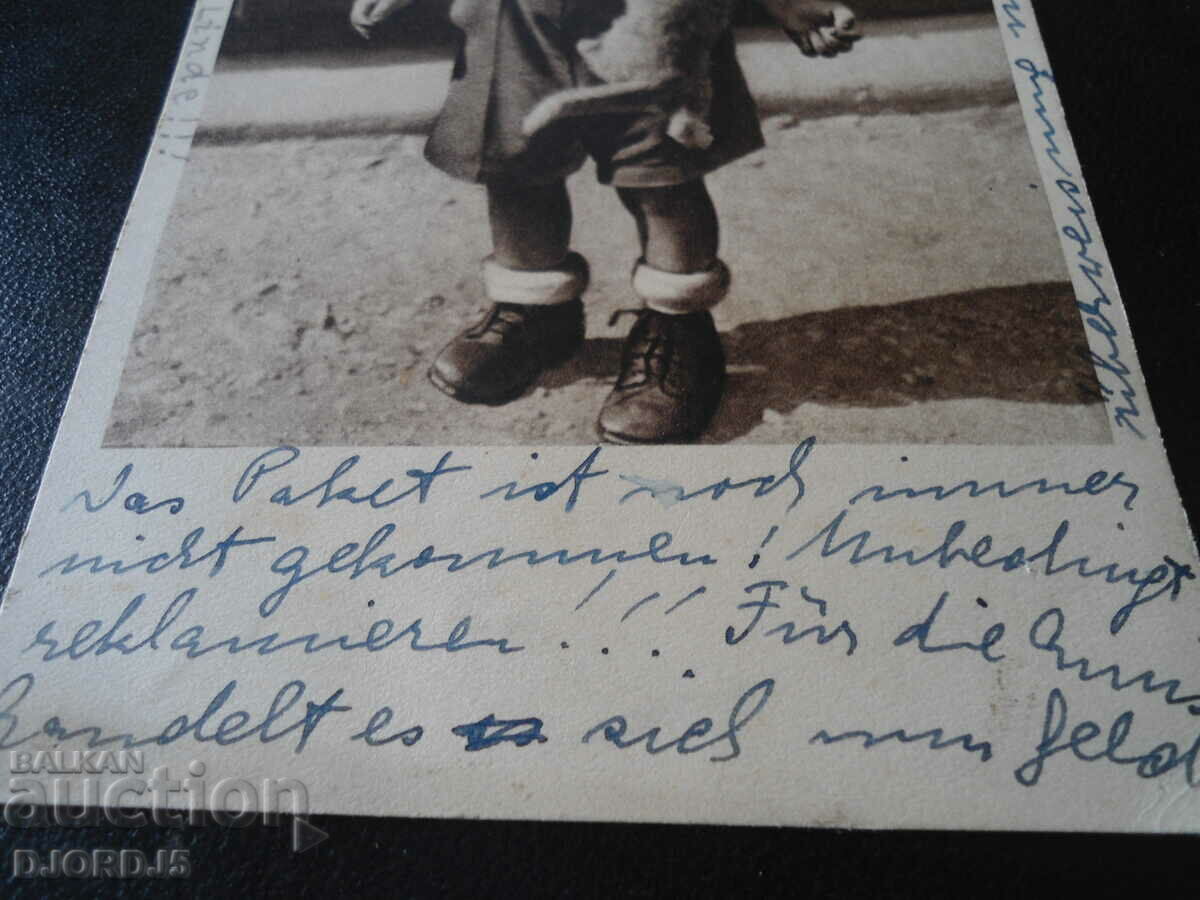 Das Paket ist noch immer
nicht gekommen! Unbedingt
reklamieren!!! Für die
handelt es sich um Geld
überweisung
BALKAN
auction
DJORD_J5